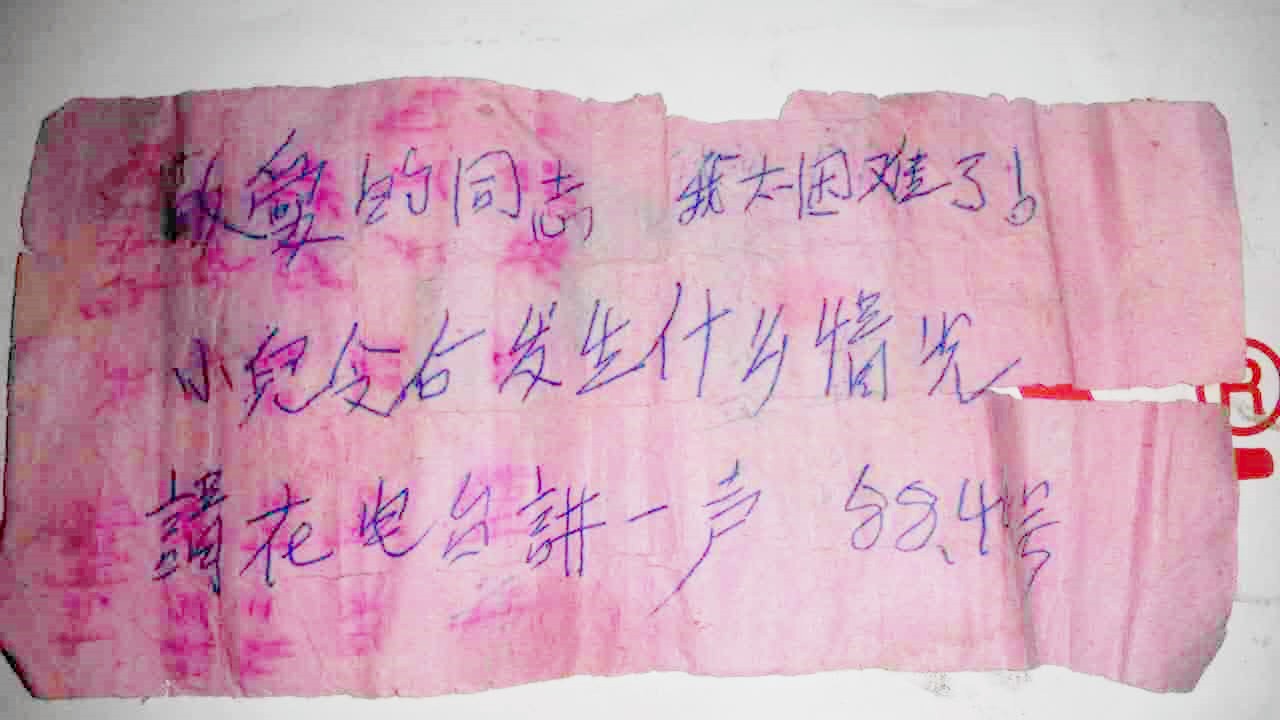 敬愛的同志 我太困难了!
小兒今后发生什么情况
®
請在电台講一声 88.4号